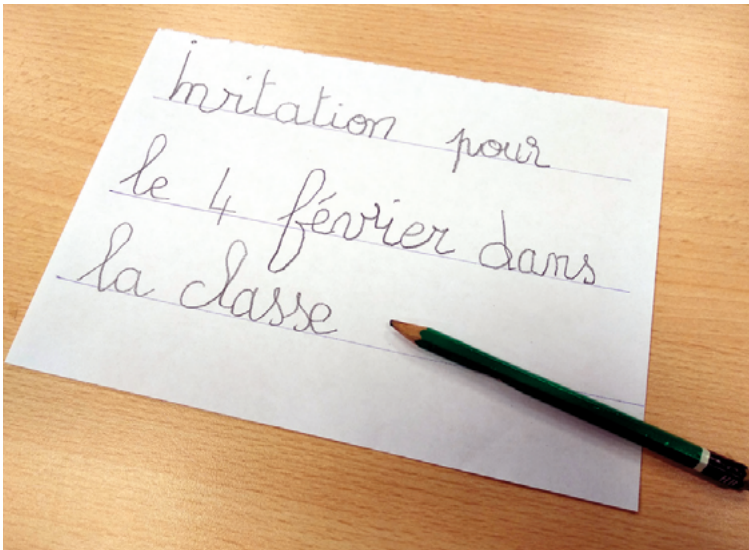 Invitation pour
le 4 février dans
la classe